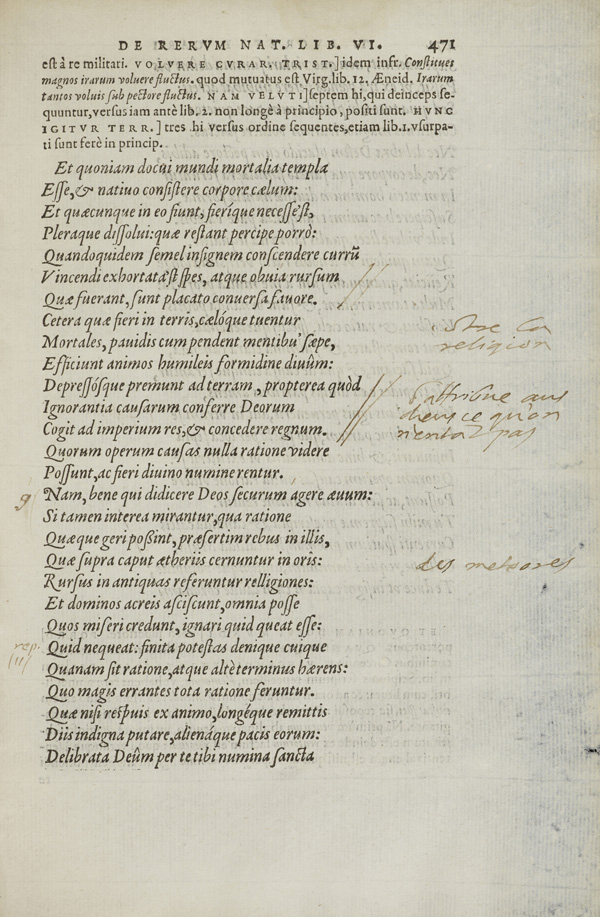 DE RERVM NAT. LIB. VI. 471
est à re militari. VOLVERE CVRAR. TRIST.] idem infr. Constituet
magnos irarum voluere fluctus. quod mutuatus est Virg. lib. 12. Æneid. Irarum
tantos voluis sub pectore fluctus. NAM VELVTI] septem hi, qui deinceps se-
quuntur, versus iam antè lib. 2. non longè à principio, positi sunt. HVNC
IGITVR TERR.] tres hi versus ordine sequentes, etiam lib. 1. vsurpa-
ti sunt ferè in princip.
Et quoniam docui mundi mortalia templa
Esse, & natiuo consistere corpore cælum:
Et quæcunque in eo fiunt, fieríque necesse'st,
Pleraque dissolui: quæ restant percipe porrò:
Quandoquidem semel insignem conscendere currũ
Vincendi exhortata'st spes, atque obuia rursum
Quæ fuerant, sunt placato conuersa fauore.
Cetera quæ fieri in terris, cælóque tuentur
Mortales, pauidis cum pendent mentibu' sæpe,
Efficiunt animos humileis formidine diuûm:
Depressósque premunt ad terram, propterea quòd
Ignorantia causarum conferre Deorum
Cogit ad imperium res, & concedere regnum.
Quorum operum causas nulla ratione videre
Possunt, ac fieri diuino numine rentur.
Nam, bene qui didicere Deos securum agere æuum:
Si tamen interea mirantur, qua ratione
Quæque geri poßint, præsertim rebus in illis,
Quæ supra caput ætheriis cernuntur in oris:
Rursus in antiquas referuntur relligiones:
Et dominos acreis asciscunt, omnia posse
Quos miseri credunt, ignari quid queat esse:
Quid nequeat: finita potestas denique cuique
Quanam sit ratione, atque altè terminus hærens:
Quo magis errantes tota ratione feruntur.
Quæ nisi respuis ex animo, longéque remittis
Diis indigna putare, alienáque pacis eorum:
Delibrata Deûm per te tibi numina sancta
religion
9